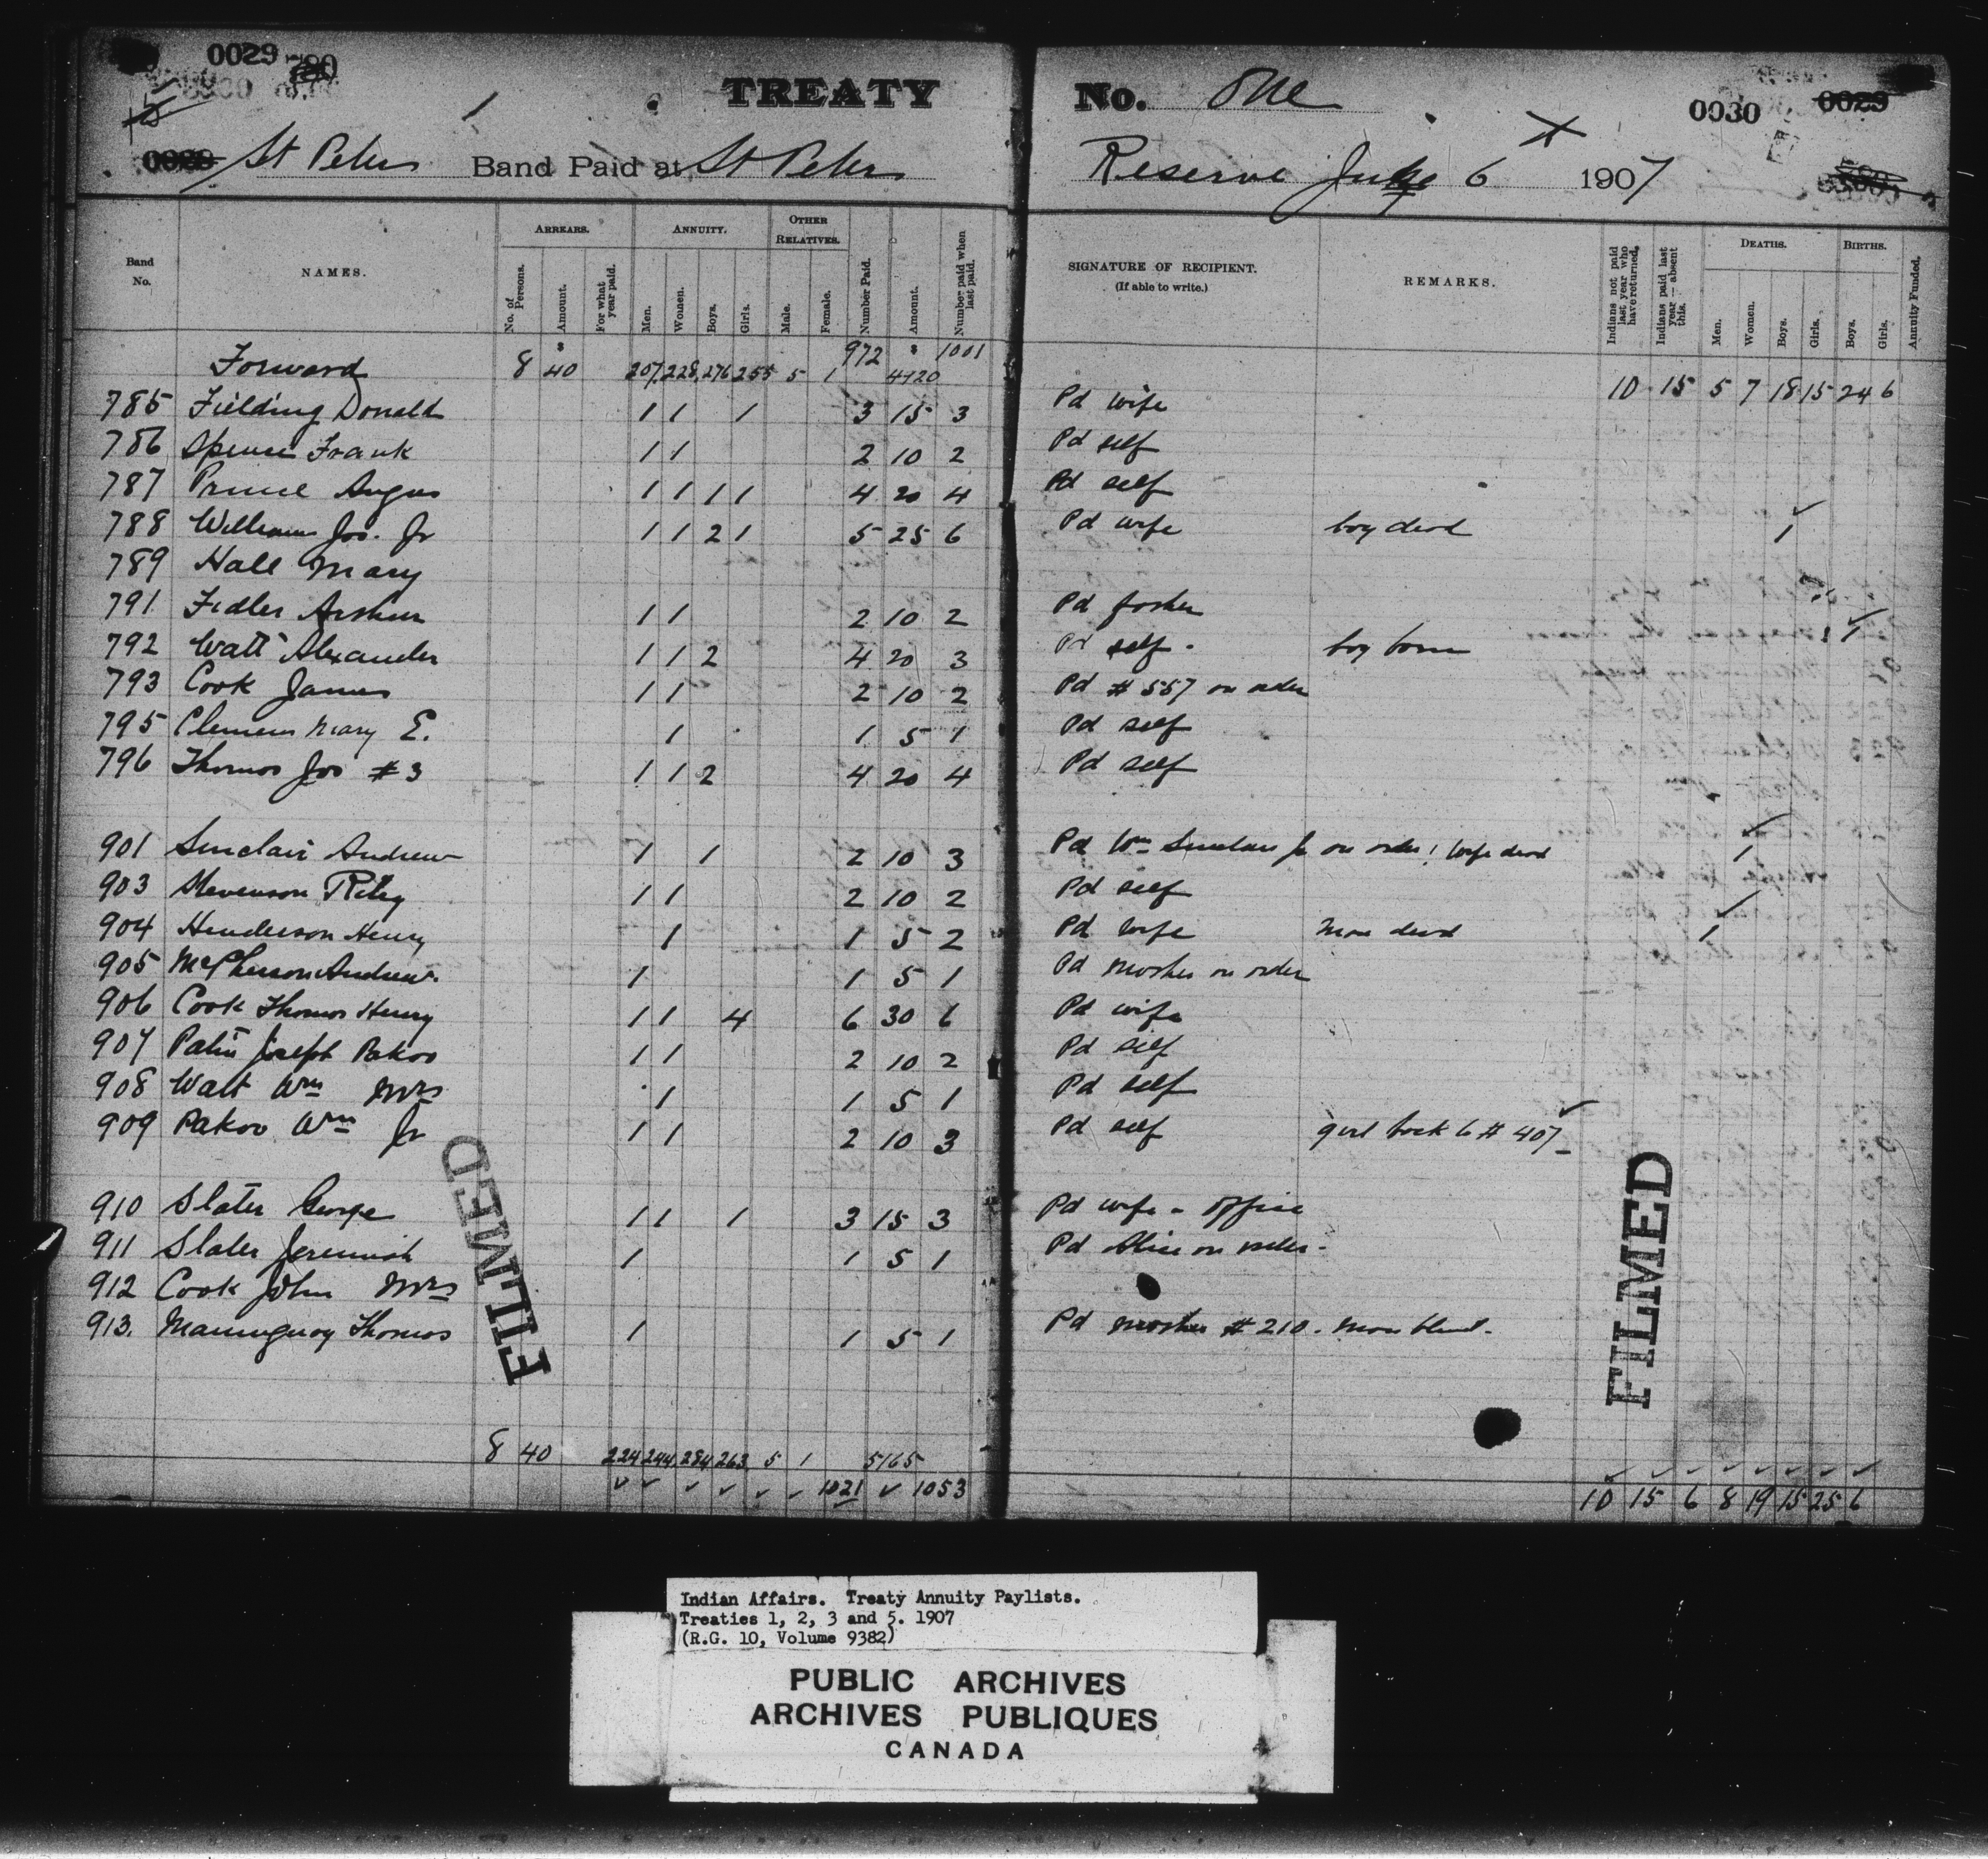 0029 780
TREATY No. One
0030 0029
St Peters Band Paid at St Peters Reserve July 6 1907
Band No. NAMES. ARREARS. ANNUITY. OTHER RELATIVES. Number Paid. Amount. Number paid when last paid. SIGNATURE OF RECIPIENT. (If able to write.) REMARKS. Indians not paid last year who have returned. Indians paid last year — absent this. DEATHS. BIRTHS. Annuity Funded.
No. of Persons. Amount. For what year paid. Men. Women. Boys. Girls. Male. Female. Men. Women. Boys. Girls. Boys. Girls.
Forward 8 40 207 228 276 255 5 1 972 1001 10 15 5 7 18 15 24 6
785 Fielding Donald 1 1 1 3 15 3 Pd wife
786 Spence Frank 1 1 2 10 2 Pd self
787 Prince Angus 1 1 1 1 4 20 4 Pd self
788 Williams Jos. Jr 1 1 2 1 5 25 6 Pd wife boy died 1
789 Hall Mary
791 Fidler Arthur 1 1 2 10 2 Pd father
792 Watt Alexander 1 1 2 4 20 3 Pd self. boy born 1
793 Cook James 1 1 2 10 2 Pd # 557 on order
795 Clemens Mary E. 1 1 5 1 Pd self
796 Thomas Jos # 3 1 1 2 4 20 4 Pd self
901 Sinclair Andrew 1 1 2 10 3 Pd Wm Sinclair Jr on order! wife died 1
903 Stevenson Riley 1 1 2 10 2 Pd self
904 Henderson Henry 1 1 5 2 Pd wife man died 1
905 McPherson Andrew. 1 1 5 1 Pd mother on order
906 Cook Thomas Henry 1 1 4 6 30 6 Pd wife
907 Joseph Pakoo 1 1 2 10 2 Pd self
908 Watt Wm Mrs 1 1 5 1 Pd self
909 Pakoo Wm Jr 1 1 2 10 3 Pd self girl back to # 407
910 Slater George 1 1 1 3 15 3 Pd wife - office
911 Slater Jeremiah 1 1 5 1 Pd Alice on order -
912 Cook John Mrs
913. Thomas 1 1 5 1 Pd mother # 210. man blind -
8 40 224 244 284 263 5 1 5165
1021 1053 10 15 6 8 19 15 25 6
FILMED
FILMED
Indian Affairs. Treaty Annuity Paylists.
Treaties 1, 2, 3 and 5. 1907
(R.G. 10, Volume 9382)
PUBLIC ARCHIVES
ARCHIVES PUBLIQUES
CANADA